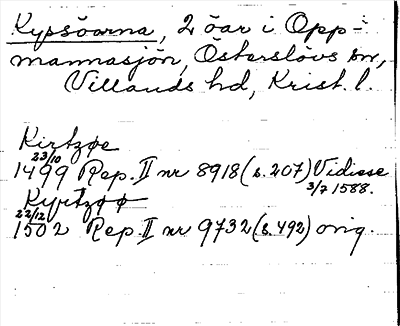 Kypsöarna, 2 öar i Opp-
mannasjön, Österslövs sn,
Villands hd, Krist. l.
Kirtzøe
23/10
1499 Rep. II nr 8918 (s. 207) Vidisse
3/7 1588.
Kyrtzøø
22/12
1502 Rep. II nr 9732 (s. 492) orig.